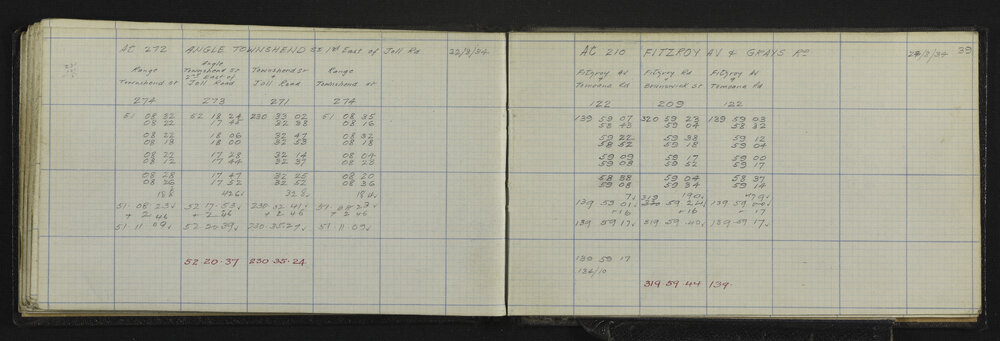 AC 272 ANGLE TOWNSHEND St 1st East of Joll Rd 22/3/34
Range Angle Townshend St Range
Townshend St Townshend St & Townshend St
2nd East of Joll Road
Joll Road
274 273 271 274
51 08 32 52 18 24 230 33 02 51 08 35
08 22 17 48 32 38 08 16
08 22 18 06 32 47 08 32
08 18 18 00 32 53 08 18
08 22 17 28 32 14 08 04
08 12 17 44 32 37 08 23
08 28 17 47 32 25 08 20
08 26 17 52 32 52 08 36
51 08 23 52 17 53 230 32 41 51 08 23
+ 2 46 + 2 46 + 2 46 + 2 46
51 11 09 52 20 39 230 35 27 51 11 09
52 20 37 230 35 24
AC 210 FITZROY AV & GRAYS Rd /3/34 39
Fitzroy Av Fitzroy Rd Fitzroy Av
& & &
Temoana Rd Brunswick St Temoana Rd
122 209 122
139 59 07 320 59 23 139 59 03
58 43 59 04 58 32
59 22 59 38 59 12
58 52 59 18 59 04
59 09 59 17 59 00
59 08 59 52 59 17
58 38 59 04 58 37
59 08 59 34 59 14
139 59 01 319 59 24 139 59 00
+ 16 + 16 + 17
139 59 17 319 59 40 139 59 17
139 59 17
136/10
319 59 44 139